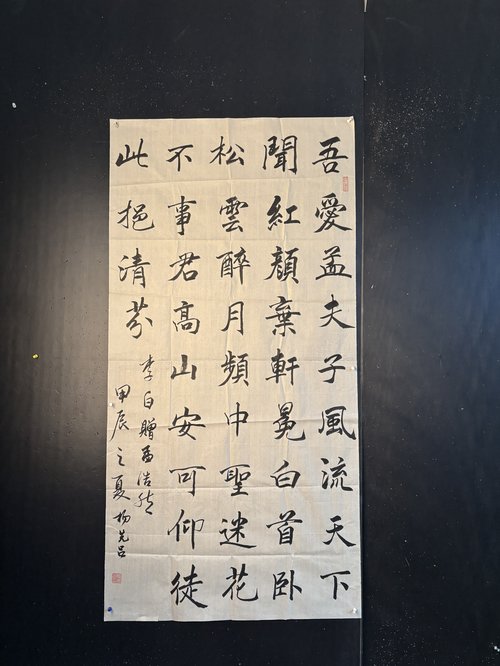 吾愛孟夫子風流天下
聞紅顔棄軒冕白首卧
松雲醉月頻中聖迷花
不事君高山安可仰徒
此挹清芬
李白贈孟浩然
甲辰之夏楊先吕